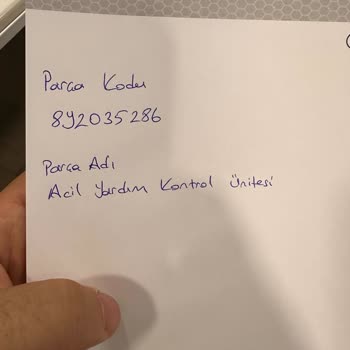 Parça Kodu
8Y2035286
Parça Adı
Acil Yardım Kontrol Ünitesi